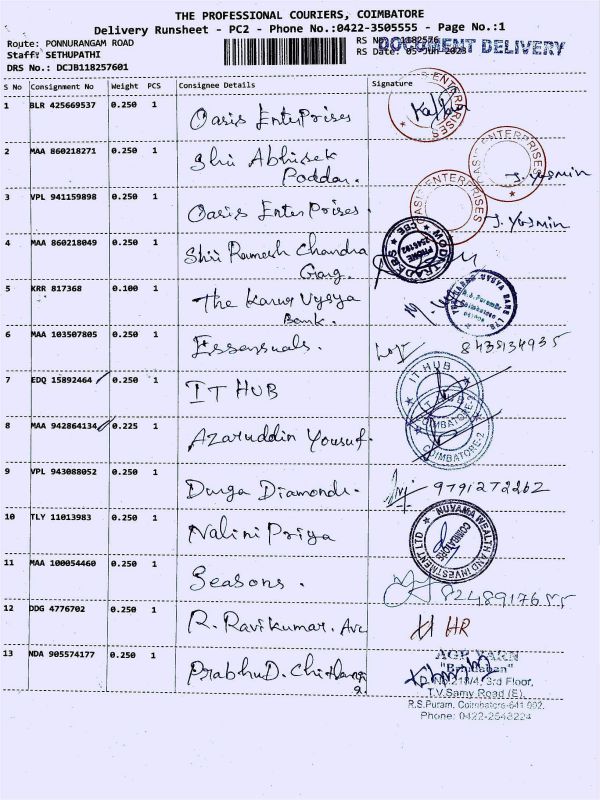 THE PROFESSIONAL COURIERS, COIMBATORE
Delivery Runsheet - PC2 - Phone No.:0422-3505555 - Page No.:1
Route: PONNURANGAM ROAD
Staff: SETHUPATHI
DRS No.: DCJB118257601
RS No.: 1182576
RS Date: 05-Jun-2023
DOCUMENT DELIVERY
S No Consignment No Weight PCS Consignee Details Signature
1 BLR 425669537 0.250 1 Oasis Enterprises
ENTERPRISES
2 MAA 860218271 0.250 1 Shri Abhisek
Poddar. J. Yasmin
3 VPL 941159898 0.250 1 Oasis Enterprises. J. Yasmin
OASIS ENTERPRISES
4 MAA 860218049 0.250 1 Shri Ramesh Chandra
Garg.
5 KRR 817368 0.100 1 The Karur Vysya
Bank.
R.S. Puram Br
Coimbatore
6 MAA 103507805 0.250 1 Essensuals. 8435934935
7 EDQ 15892464 0.250 1 IT HUB
IT.HUB
COIMBATORE-2
8 MAA 942864134 0.225 1 Azaruddin Yousuf.
IT.HUB
COIMBATORE-2
9 VPL 943088052 0.250 1 Durga Diamonds. 9791272262
10 TLY 11013983 0.250 1 Nalini Priya
NUVAMA WEALTH AND INVESTMENT LTD
COIMBATORE
11 MAA 100054460 0.250 1 Seasons.
12 DDG 4776702 0.250 1 R. Ravikumar. Ave HR
13 NDA 905574177 0.250 1 Prabhu D. Chithang
a.
AGR YARN
D.No.218/4, 3rd Floor,
T.V.Samy Road (E),
R.S.Puram, Coimbatore-641 002.
Phone: 0422-2543224